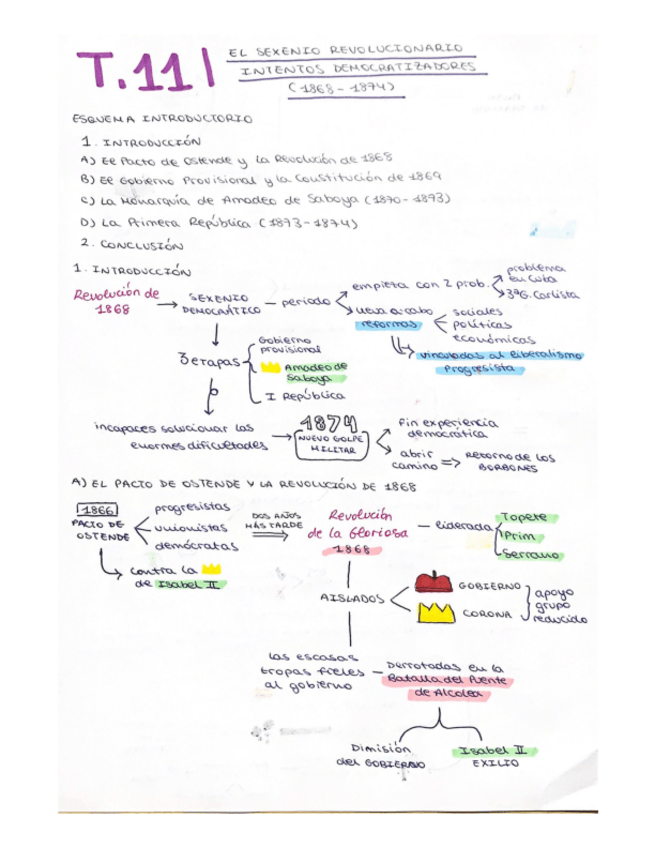 T.11
EL SEXENIO REVOLUCIONARIO
INTENTOS DEMOCRATIZADORES
(1868-1874)
ESQUEMA INTRODUCTORIO
1. INTRODUCCIÓN
A) El Pacto de Ostende y la Revolución de 1868
B) El Gobierno Provisional y la Constitución de 1869
C) La Monarquía de Amadeo de Saboya (1870-1873)
D) La Primera República (1873-1874)
2. CONCLUSIÓN
1. INTRODUCCIÓN
Revolución de
1868
SEXENIO
DEMOCRÁTICO
periodo
empieza con 2 prob.
problema
en Cuba
3ªG. Carlista
lleva a cabo
reformas
sociales
políticas
económicas
vinculadas al liberalismo
Progresista
3 etapas
Gobierno
provisional
Amadeo de
Saboya
I República
incapaces solucionar las
enormes dificultades
1874
NUEVO GOLPE
MILITAR
fin experiencia
democrática
abrir
camino
Retorno de los
BORBONES
A) EL PACTO DE OSTENDE Y LA REVOLUCIÓN DE 1868
1866
PACTO DE
OSTENDE
progresistas
unionistas
demócratas
contra la
de Isabel II
DOS AÑOS
MÁS TARDE
Revolución
de la Gloriosa
1868
liderada
Topete
Prim
Serrano
AISLADOS
GOBIERNO
CORONA
apoyo
grupo
reducido
las escasas
tropas fieles
al gobierno
Derrotadas en la
Batalla del Puente
de Alcolea
Dimisión
del GOBIERNO
Isabel II
EXILIO